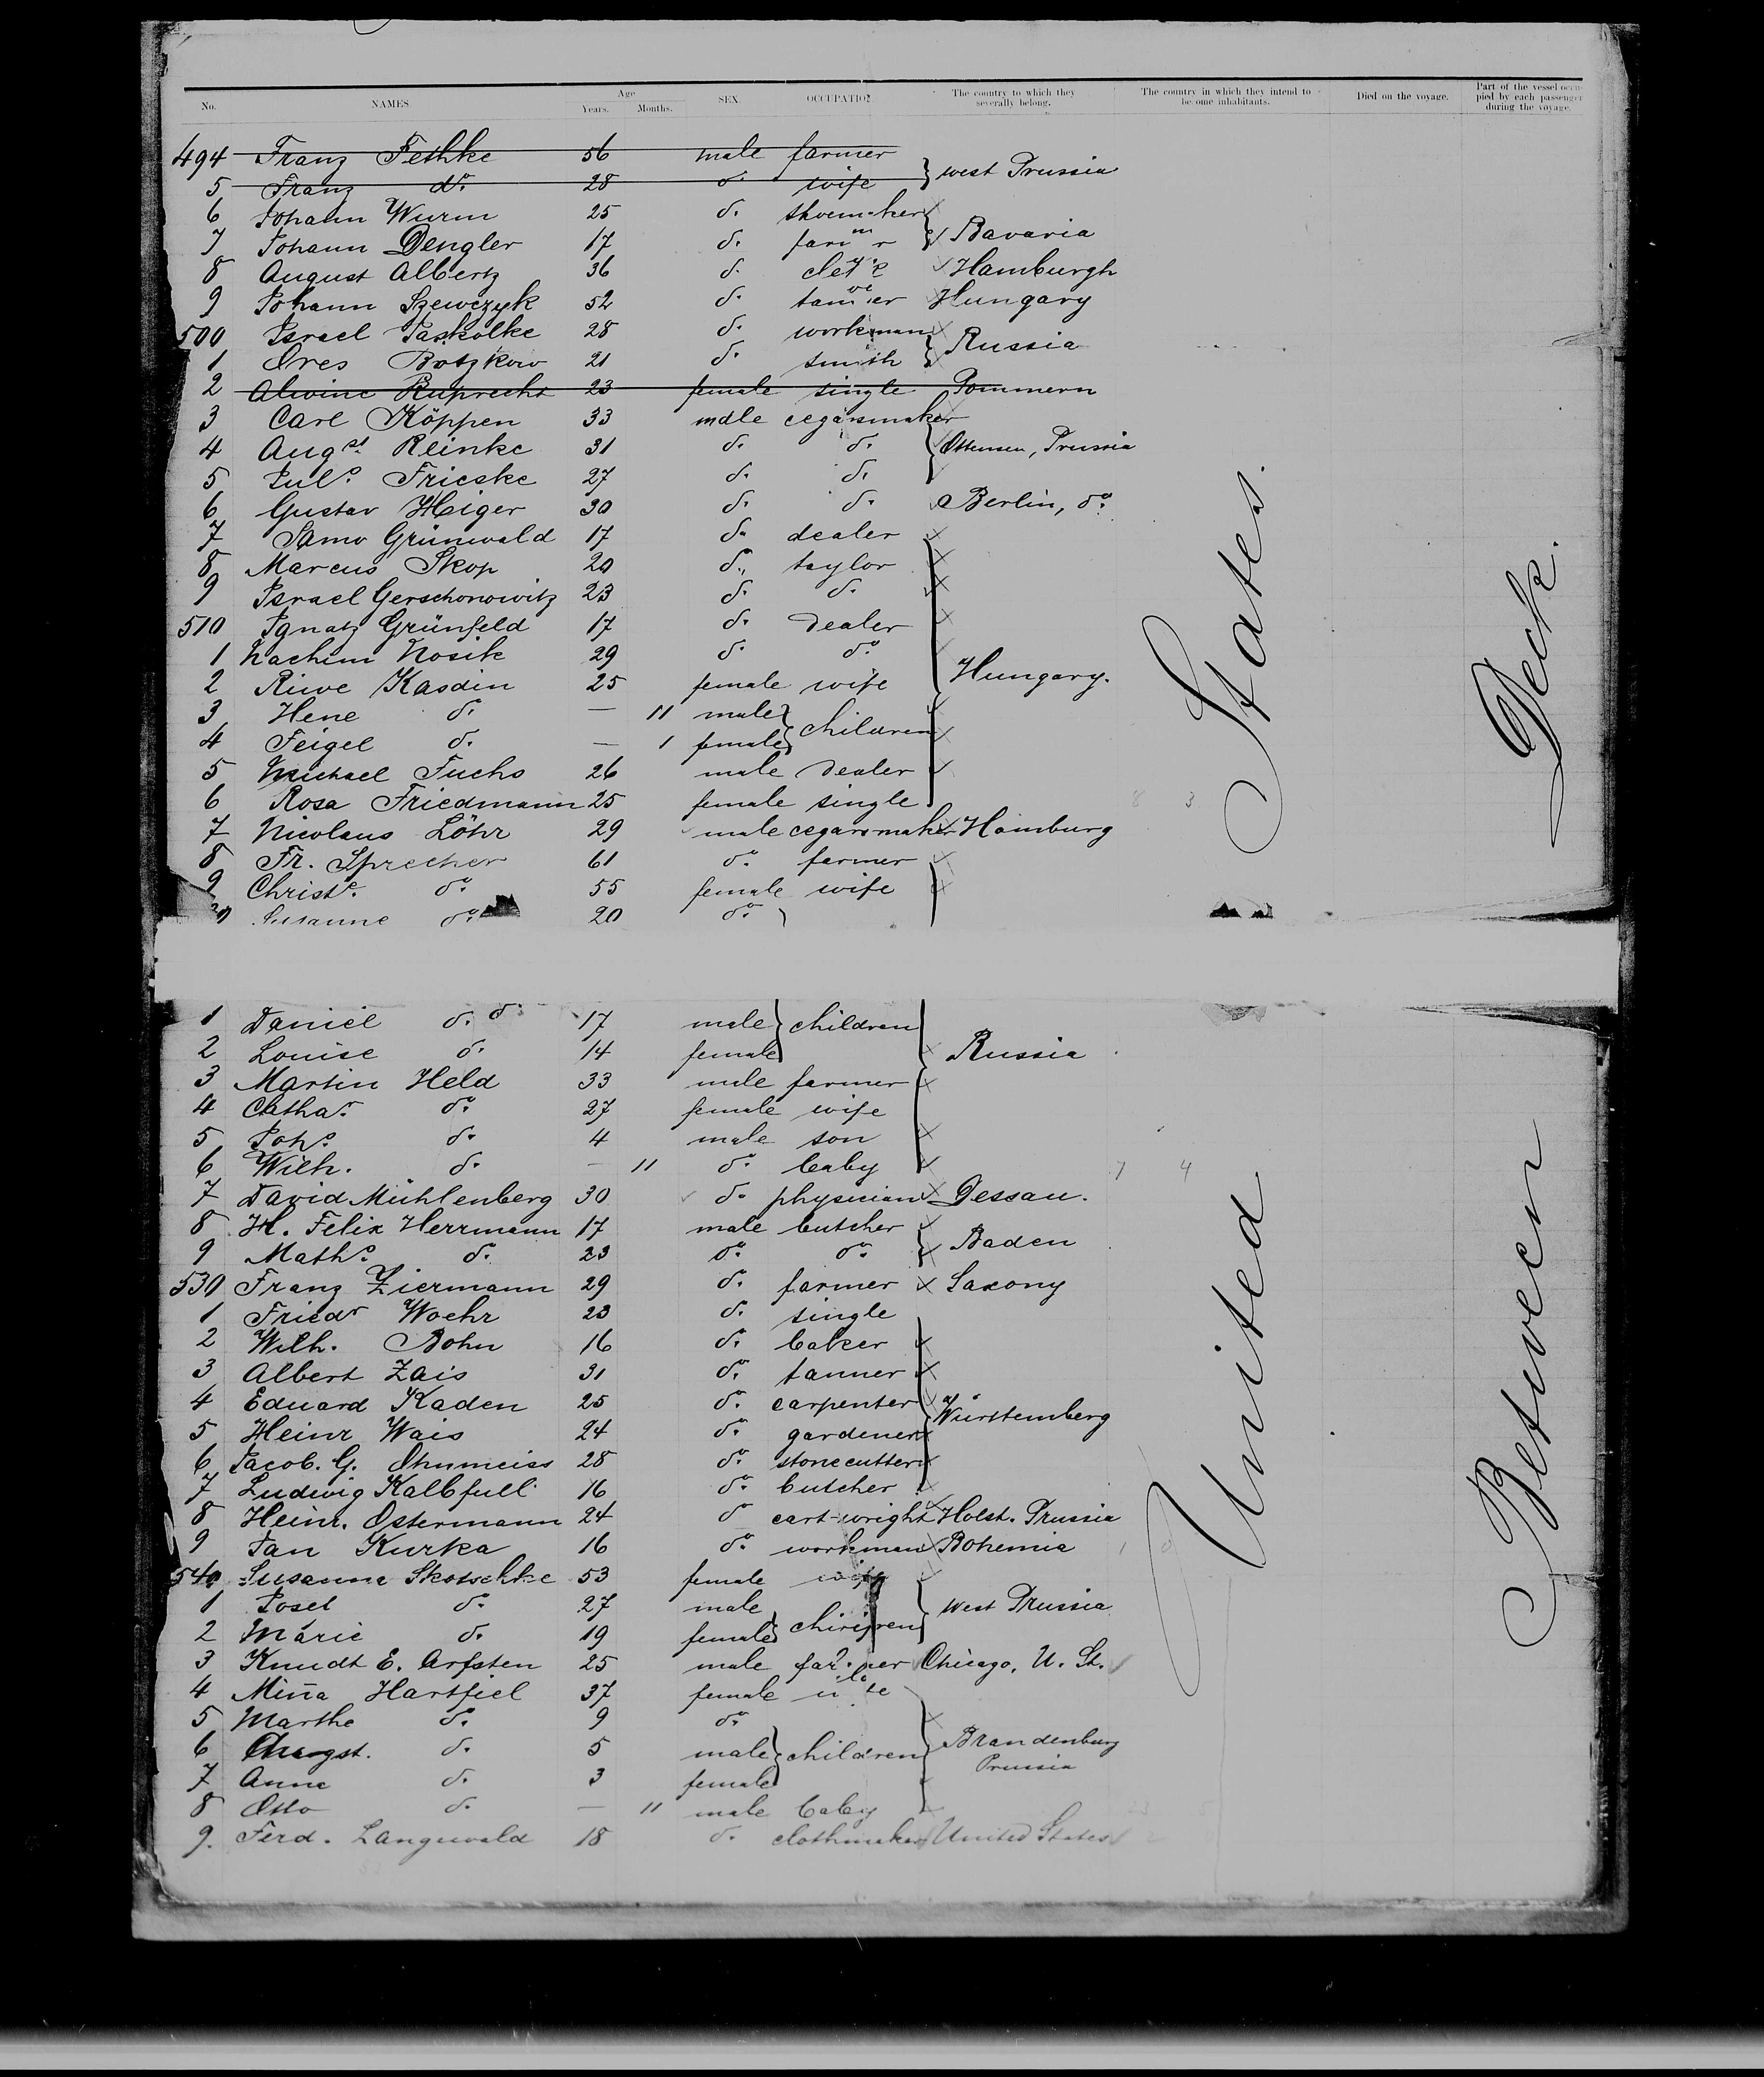 No. NAMES. Age Years. Months. SEX. OCCUPATION. The country to which they severally belong. The country in which they intend to become inhabitants. Died on the voyage. Part of the vessel occupied by each passenger during the voyage.
494 Franz Fethke 56 male farmer
west Prussia
5 Franz do. 28 do. wife
6 Johann Wurm 25 do. shoemaker
7 Johann Dengler 17 do. farmer Bavaria
8 August Albertz 36 do. Hamburgh
9 Johann Szewczyk 52 do. Hungary
500 Israel Paskolke 28 do. workman
Russia
1 Ores Botzkow 21 do. smith
2 Alwine Ruprecht 23 female single Pommern
3 Carl Köppen 33 male cegarsmaker
4 Augst. Reinke 31 do. do. Ottensen, Prussia
5 Juls. Frieske 27 do. do.
6 Gustav Heiger 30 do. do. Berlin, do.
7 Samo Grünwald 17 do. dealer
8 Marcus Skop 20 do. taylor
9 Israel Gerschonowitz 23 do. do.
510 Ignatz Grünfeld 17 do. dealer
1 Nachim Nosik 29 do. do.
2 Riwe Kasdin 25 female wife Hungary.
3 Hene do. — 11 male
children
4 Feigel do. — 1 female
5 Michael Fuchs 26 male dealer
6 Rosa Friedmann 25 female single 8 3
7 Nicolaus Löhr 29 male cegarsmaker Hamburg
8 Fr. Sprecher 61 do. farmer
9 Christe. do. 55 female wife
20 Susanne do. 20 do.
1 Daniel do. do. 17 male children
2 Louise do. 14 female Russia
3 Martin Held 33 male farmer
4 Cathar. do. 27 female wife
5 Joh. do. 4 male son
6 Wilh. do. — 11 do. baby 7 4
7 David Mühlenberg 30 do. physician Dessau.
8 H. Felix Herrmann 17 male butcher
Baden
9 Maths. do. 23 do. do.
530 Franz Ziermann 29 do. farmer Saxony
1 Friedr Woehr 23 do. single
2 Wilh. Bohn 16 do. baker
3 Albert Zais 31 do. tanner
4 Eduard Kaden 25 do. carpenter
Württemberg
5 Heinr Wais 24 do. gardener
6 Jacob. G. Ohnmeiss 28 do. stonecutter
7 Ludwig Kalbfull 16 do. butcher
8 Heinr. Ostermann 24 do cart-wright Holst. Prussia
9 Jan Kurka 16 do. workman Bohemia 1 0
540 Susanna Skotschke 53 female wife
1 Josel do. 27 male west Prussia
children
2 Marie do. 19 female
3 Knudt E. Arfsten 25 male farmer Chicago, U. St.
4 Miña Hartfiel 37 female wife
5 Marthe do. 9 do.
6 do. 5 male children Brandenburg
Prussia
7 Anna do. 3 female
8 Otto do. — 11 male baby 23
9. Ferd. Languvald 18 do. clothmaker United States 2
United States.
Between Deck.